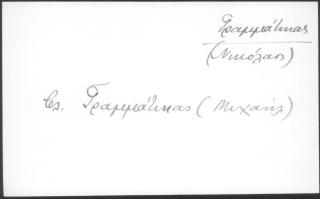 Γραμμάτικας
(Νικόλαος)
βλ. Γραμμάτικας (Μιχαήλ)